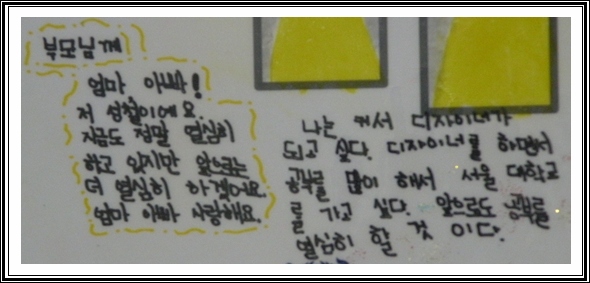 부모님께
엄마, 아빠!
저 성철이에요.
지금도 정말 열심히
하고 있지만 앞으로는
더 열심히 하겠어요.
엄마 아빠 사랑해요.
나는 커서 디자이너가
되고 싶다. 디자이너를 하면서
공부를 많이 해서 서울 대학교
를 가고 싶다. 앞으로도 공부를
열심히 할 것 이다.